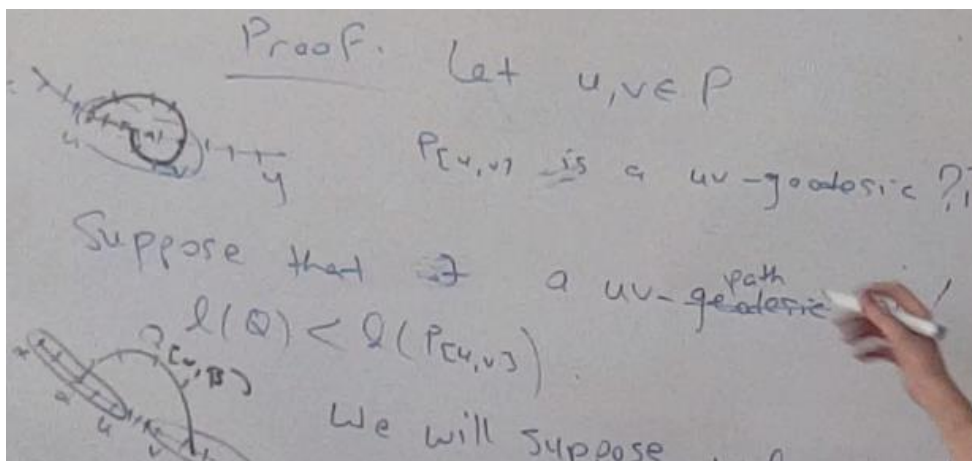 Proof. Let u,v∈P
P[u,v] is a uv-geodesic ??
u
v
y
Suppose that ∃ a uv-geodesic path
l(Q) < l(P[u,v]).
x
u
v
We will suppose